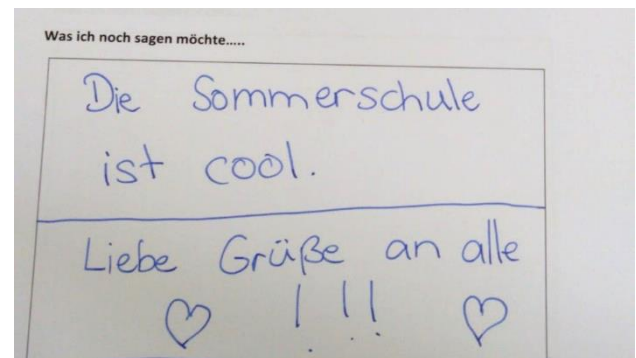 Was ich noch sagen möchte.....
Die Sommerschule
ist cool.
Liebe Grüße an alle
♡ !!! ♡